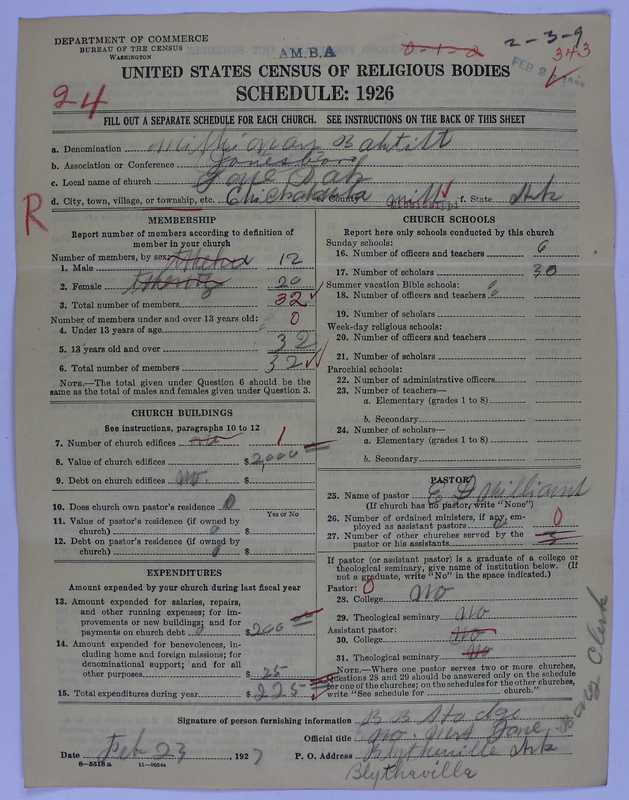 DEPARTMENT OF COMMERCE
BUREAU OF THE CENSUS
WASHINGTON
A.M.B.A
0-1-2
2-3-9
343
FEB 2
24
UNITED STATES CENSUS OF RELIGIOUS BODIES
SCHEDULE: 1926
FILL OUT A SEPARATE SCHEDULE FOR EACH CHURCH. SEE INSTRUCTIONS ON THE BACK OF THIS SHEET
a. Denomination Missionary Babtist
b. Association or Conference Jonesboro
c. Local name of church Oak
d. City, town, village, or township, etc. Chickasawba e. County Miss Mississippi f. State Ark
R
MEMBERSHIP
Report number of members according to definition of
member in your church
Number of members, by sex:
1. Male 12
2. Female 20
3. Total number of members 32
Number of members under and over 13 years old:
4. Under 13 years of age 0
5. 13 years old and over 32
6. Total number of members 32
NOTE.—The total given under Question 6 should be
same as the total of males and females given under Question 3.
CHURCH BUILDINGS
See instructions, paragraphs 10 to 12
7. Number of church edifices 1
8. Value of church edifices $2,000
9. Debt on church edifices no. $
10. Does church own pastor's residence 0
Yes or No
11. Value of pastor's residence (if owned by
church) 0 $
12. Debt on pastor's residence (if owned by
church) 0 $
EXPENDITURES
Amount expended by your church during last fiscal year
13. Amount expended for salaries, repairs,
and other running expenses; for im-
provements or new buildings; and for
payments on church debt $200
14. Amount expended for benevolences, in-
cluding home and foreign missions; for
denominational support; and for all
other purposes $ 25
15. Total expenditures during year $225
CHURCH SCHOOLS
Report here only schools conducted by this church
Sunday schools:
16. Number of officers and teachers 6
17. Number of scholars 30
Summer vacation Bible schools:
18. Number of officers and teachers
19. Number of scholars
Week-day religious schools:
20. Number of officers and teachers
21. Number of scholars
Parochial schools:
22. Number of administrative officers
23. Number of teachers—
a. Elementary (grades 1 to 8)
b. Secondary
24. Number of scholars—
a. Elementary (grades 1 to 8)
b. Secondary
PASTOR
25. Name of pastor E D Williams
(If church has no pastor, write "None")
26. Number of ordained ministers, if any, em-
ployed as assistant pastors 0
27. Number of other churches served by the
pastor or his assistants 3
If pastor (or assistant pastor) is a graduate of a college or
theological seminary, give name of institution below. (If
not a graduate, write "No" in the space indicated.)
Pastor: 0
28. College no
29. Theological seminary no
Assistant pastor:
30. College No
31. Theological seminary No
NOTE.—Where one pastor serves two or more churches,
Questions 28 and 29 should be answered only on the schedule
for one of the churches; on the schedules for the other churches,
write "See schedule for church."
Clerk
Signature of person furnishing information B B
Official title
Date Feb 23, 1927 P. O. Address Blytheville Ark
8—5518 a 11—9054a
Blythaville